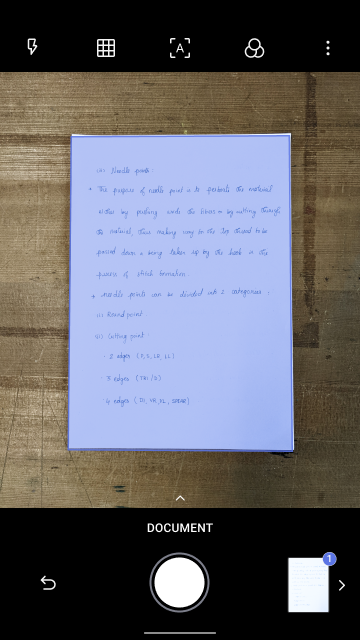 A
Needle points
The purpose of needle point is to perforate the material
either by pushing aside the fibres or by cutting through
the material, thus making way to the top thread to be
passed down & being taken up by the hook in the
process of stitch formation.
* needle points can be divided into 2 categories:
(i) Round point
(ii) Cutting point:
· 2 edges (P, S, LR, LL)
· 3 edges (TRI/D)
· 4 edges (
DOCUMENT
1